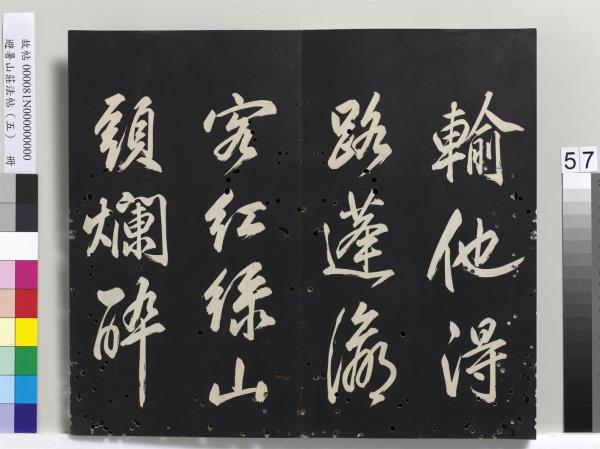 輸他得
路蓬瀛
客紅綠山
頭爛醉
故帖 000081N000000000
避暑山莊法帖（五） 冊
57